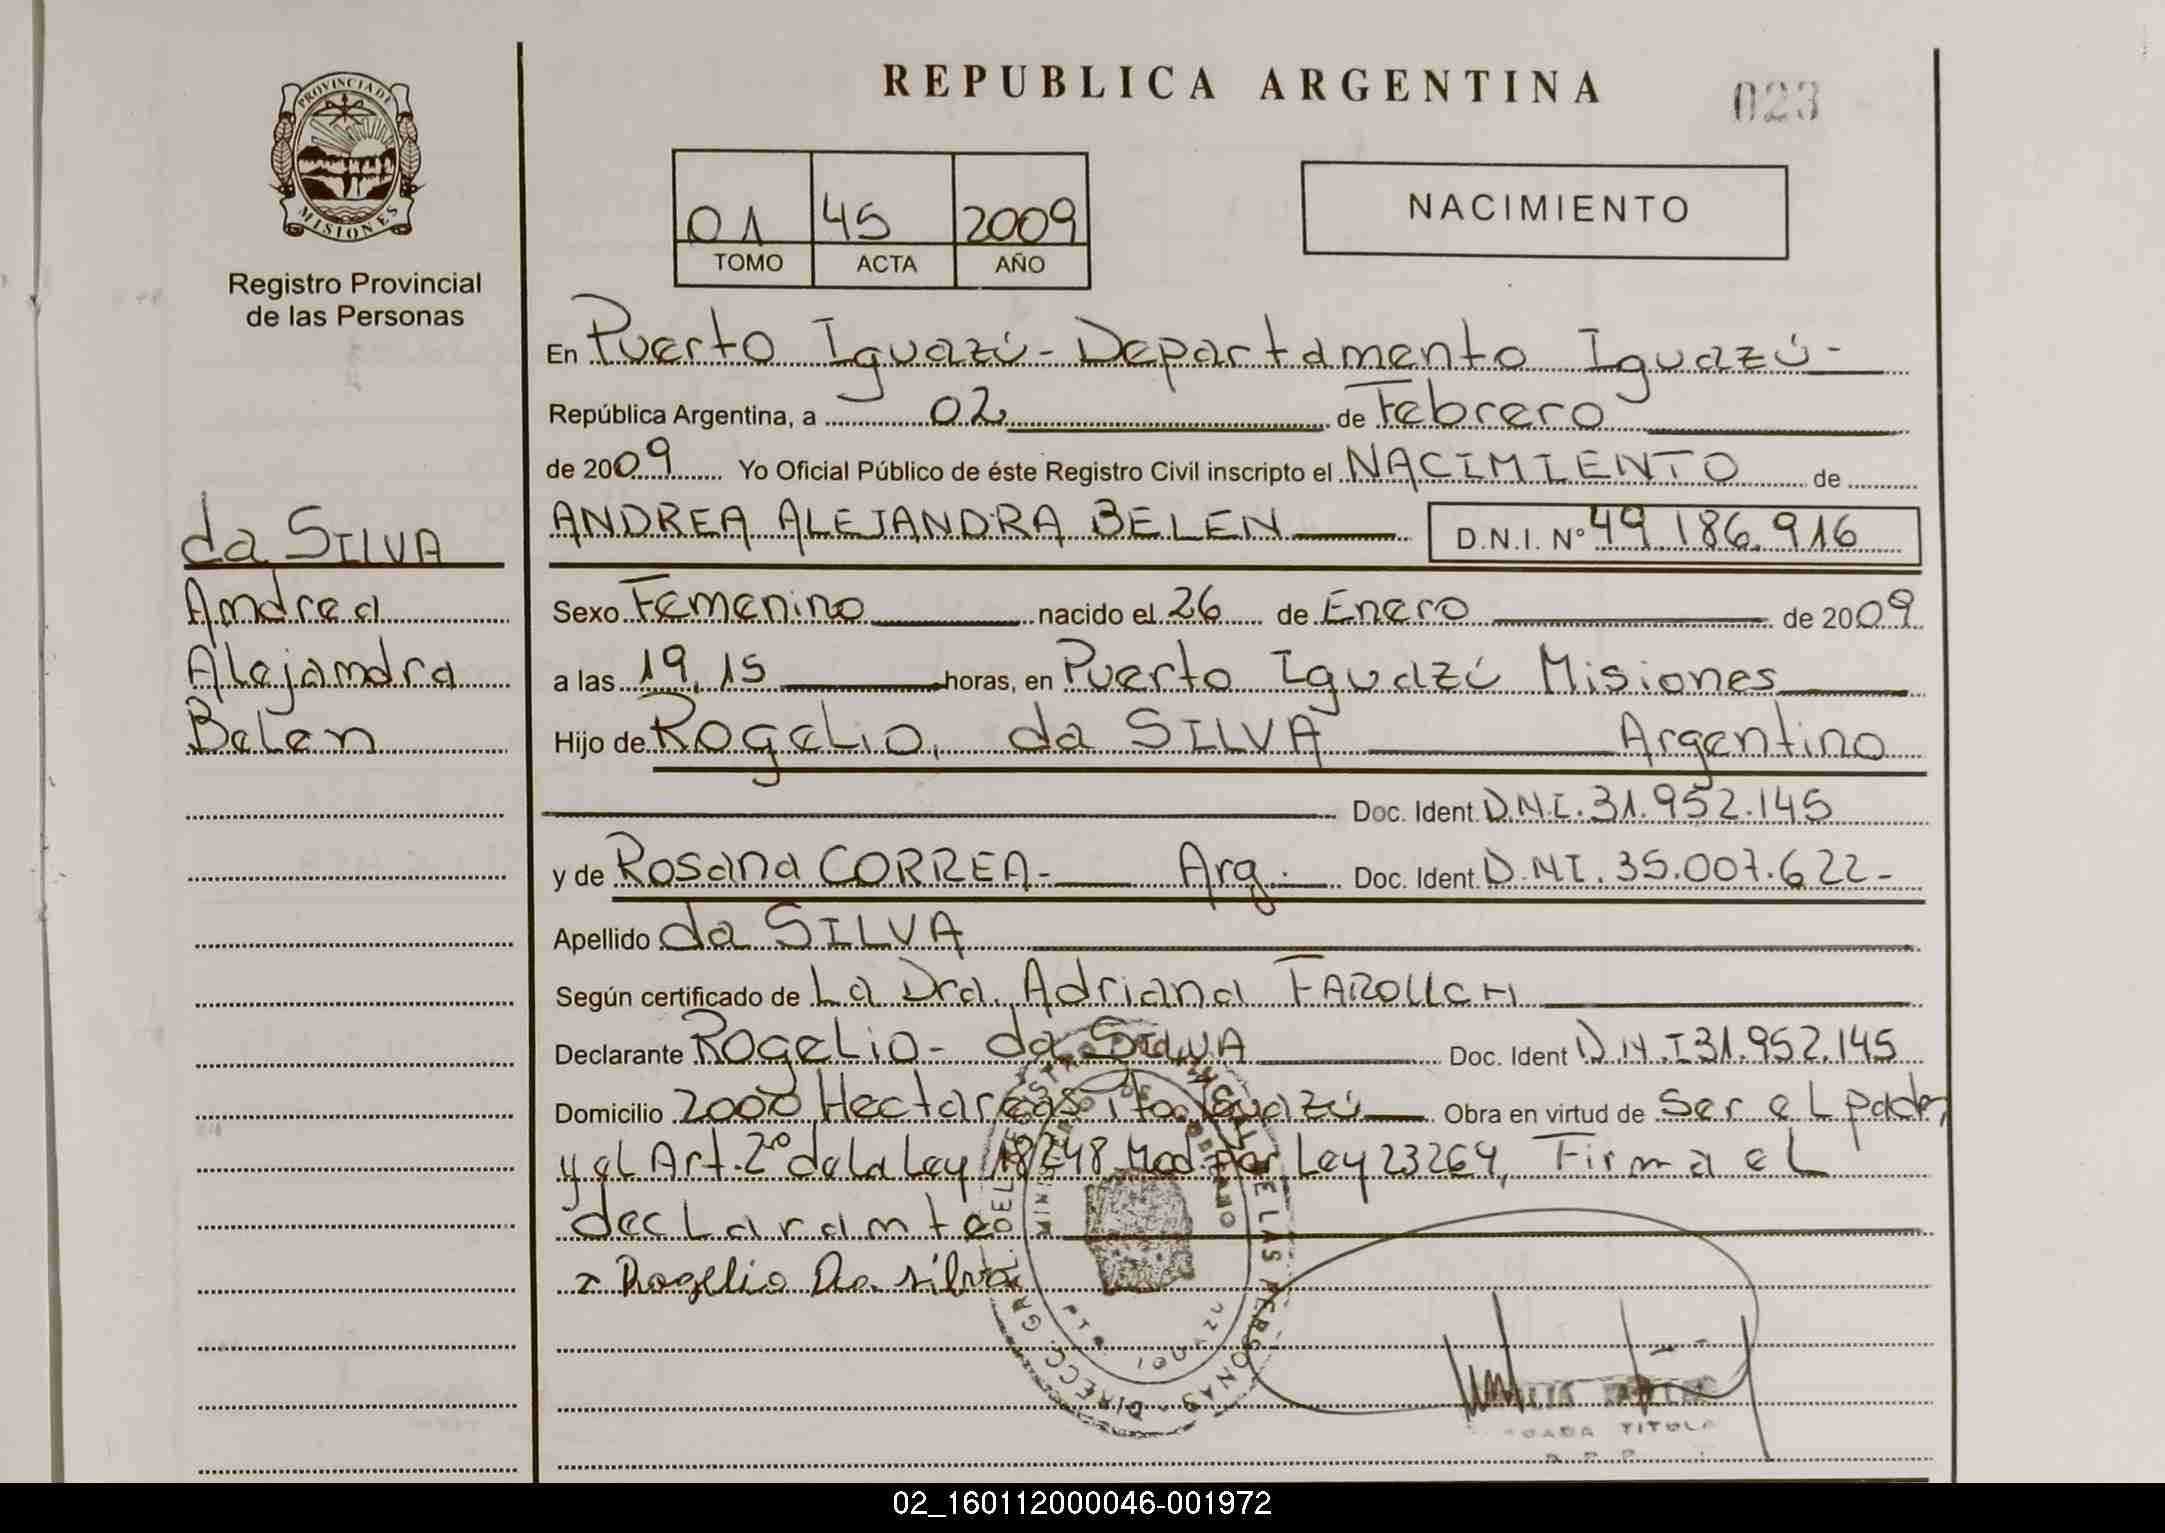 REPUBLICA ARGENTINA
023
PROVINCIA DE
MISIONES
Registro Provincial
de las Personas
01 45 2009
TOMO ACTA AÑO
NACIMIENTO
En Puerto Iguazú - Departamento Iguazú -
República Argentina, a 02 de Febrero
de 2009 Yo Oficial Público de éste Registro Civil inscripto el NACIMIENTO de
ANDREA ALEJANDRA BELEN D.N.I. Nº 49.186.916
da SILVA
Andrea
Alejandra
Belen
Sexo Femenino nacido el 26 de Enero de 2009
a las 19,15 horas, en Puerto Iguazú Misiones
Hijo de Rogelio, da SILVA Argentino
Doc. Ident. D.N.I. 31.952.145
y de Rosana CORREA - Arg. Doc. Ident. D.N.I. 35.007.622 -
Apellido da SILVA
Según certificado de La Dra. Adriana
Declarante Rogelio - da SILVA Doc. Ident D.N.I 31.952.145
Domicilio 2000 Hectareas Pto. Iguazú Obra en virtud de Ser el padre,
y el Art. 2º de la Ley 18248 Mod. por Ley 23264, Firma el
declarante
x Rogelio Da silva
02_160112000046-001972